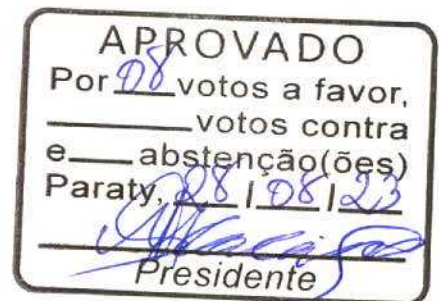 APROVADO
Por 08 votos a favor,
votos contra
e abstenção(ões)
Paraty, 28 / 08 / 23
Presidente